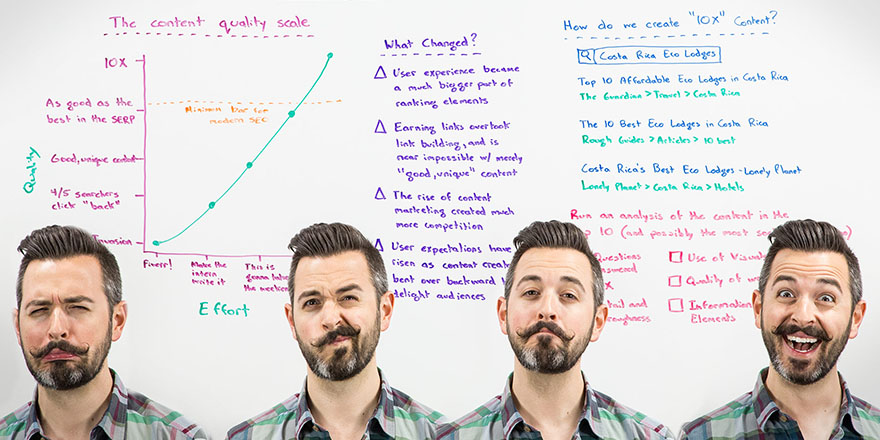 The content quality scale
10X
As good as the
best in the SERP
Good, unique content
4/5 searchers
click "back"
Invasion
Quality
Minimum bar for
modern SEO
Fiverr!
Make the
intern
write it
This is
gonna take
the weekend
Effort
What Changed?
User experience became
a much bigger part of
ranking elements
Earning links overtook
link building, and is
near impossible w/ merely
"good, unique" content
The rise of content
marketing created much
more competition
User expectations have
risen as content
bent over backward
delight audiences
How do we create "10X" Content?
Costa Rica Eco Lodges
Top 10 Affordable Eco Lodges in Costa Rica
The Guardian > Travel > Costa Rica
The 10 Best Eco Lodges in Costa Rica
Rough Guides > Articles > 10 best
Costa Rica's Best Eco Lodges - Lonely Planet
Lonely Planet > Costa Rica > Hotels
Run an analysis of the content in the
10 (and possibly the most
Use of
Quality of
Information
Elements